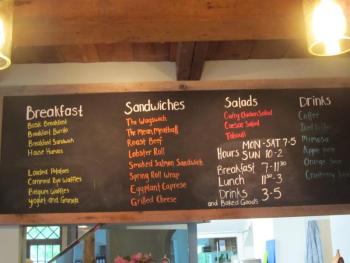 Breakfast
Basic Breakfast
Breakfast Burrito
Breakfast Sandwich
House Huevos
Loaded Potatoes
Cornmeal Rye Waffles
Belgium Waffles
yogurt and Granola
Sandwiches
The Wagwich
The Mean Meatball
Roast Beef
Lobster Roll
Smoked Salmon Sandwich
Spring Roll Wrap
Eggplant Caprese
Grilled Cheese
Salads
Curry Chicken Salad
Caesar Salad
Tabouli
Hours MON-SAT 7-5
SUN 10-2
Breakfast 7-11:30
Lunch 11:30-3
Drinks 3-5
and Baked Goods
Drinks
Coffee
Iced Coffee
Mimosa
Apple Juice
Orange Juice
Cranberry Juice